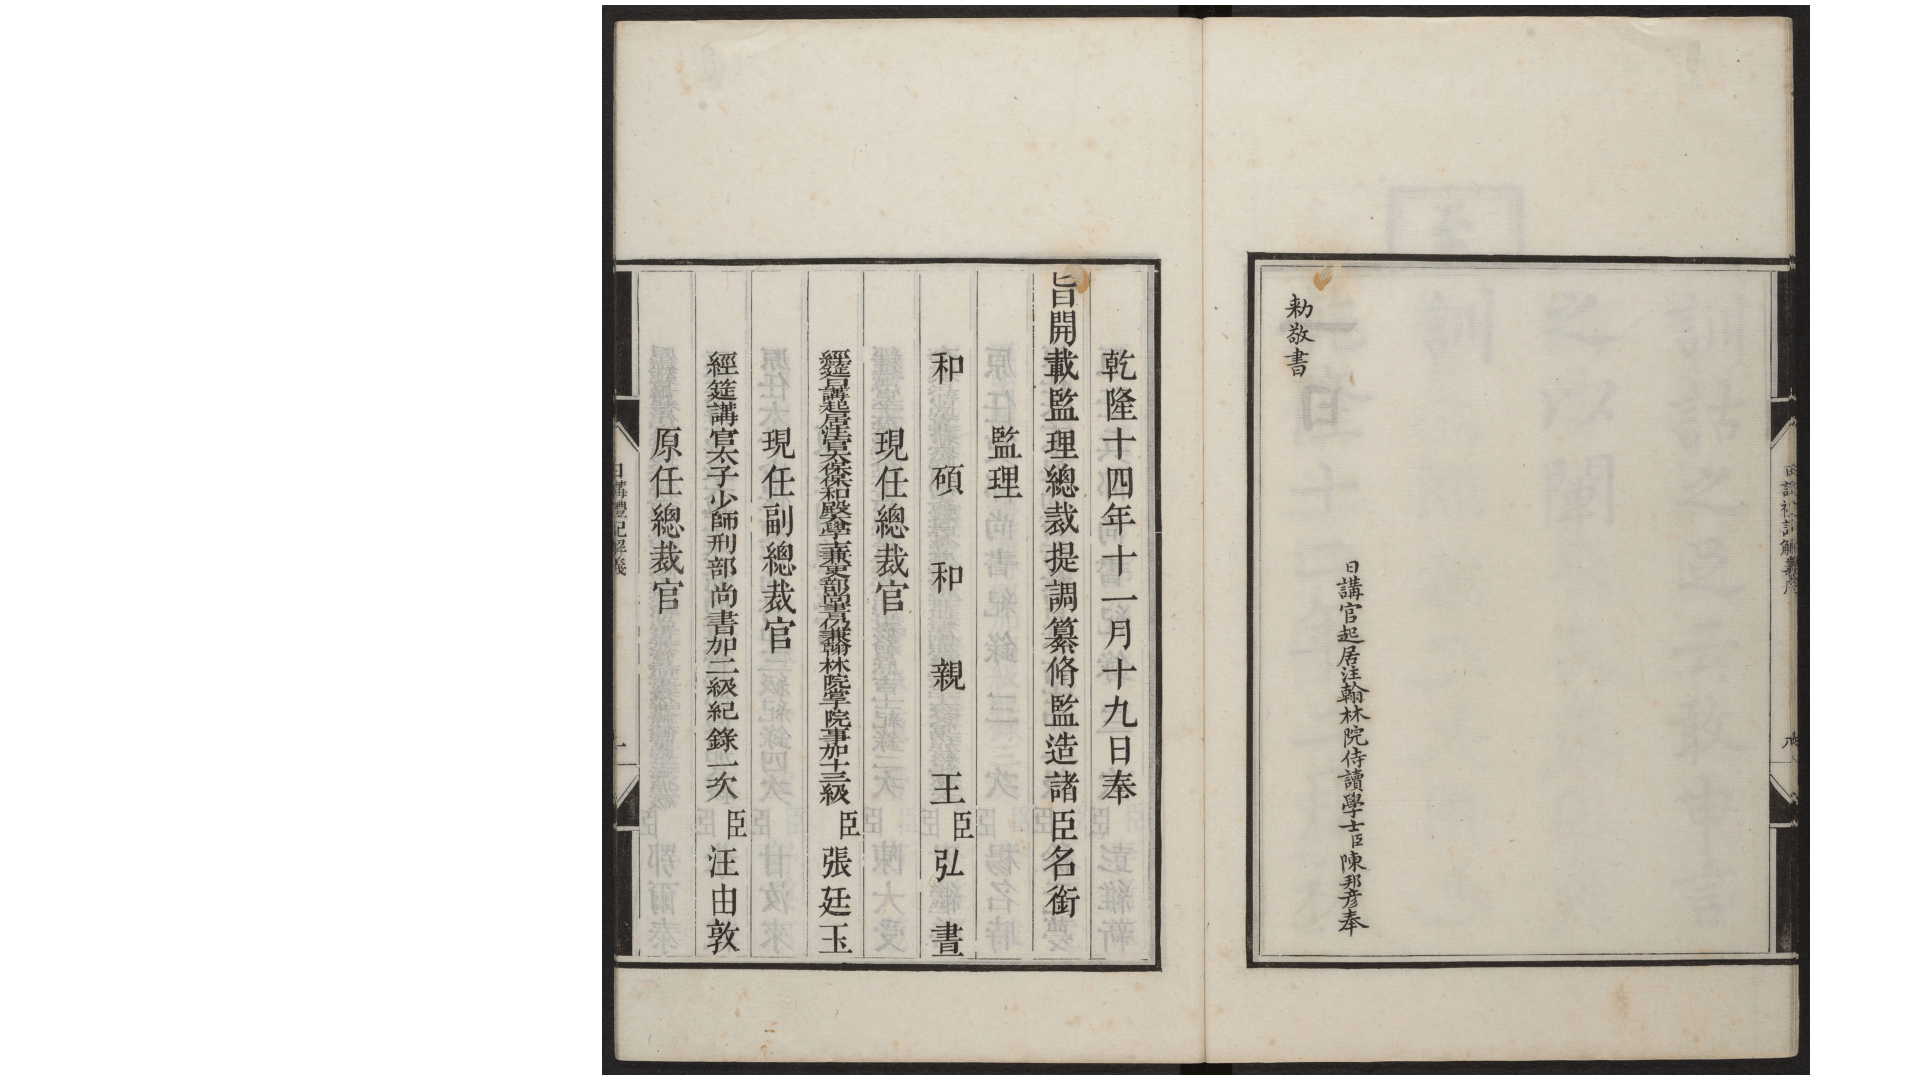 日講官起居注翰林院侍讀學士臣陳邦彥奉
勅敬書
乾隆十四年十一月十九日奉
旨開載監理總裁提調纂脩監造諸臣名銜
監理
和碩和親王臣弘晝
現任總裁官
經筵日講起居注官太保保和殿大學士兼吏部尚書仍兼翰林院掌院事加十三級臣張廷玉
現任副總裁官
經筵講官太子少師刑部尚書加二級紀錄一次臣汪由敦
原任總裁官
日講禮記解義